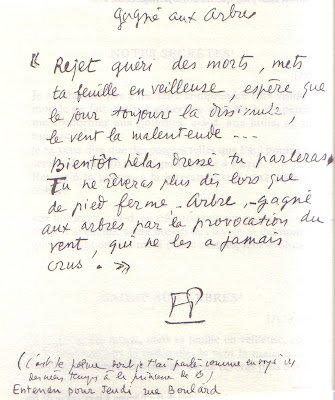 Gagné aux arbres
« Rejet guéri des morts, mets
ta feuille en veilleuse, espère que
le jour toujours la dissimule,
le vent la malentende ---
Bientôt hélas dressé tu parleras,
Tu ne rêveras plus dès lors que
de pied ferme. Arbre, - gagné
aux arbres par la provocation du
vent, qui ne les a jamais
crus. »
(C'est le poème dont je t'ai parlé comme envoyé ces
derniers temps à la
Entendu pour Jeudi rue Boulard